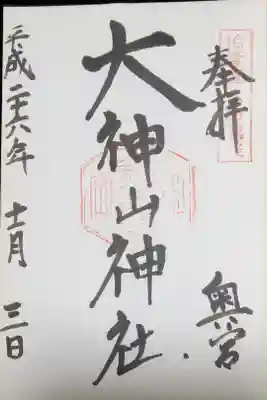 奉拝
奥宮
大神山神社
平成二十六年
十一月
三日